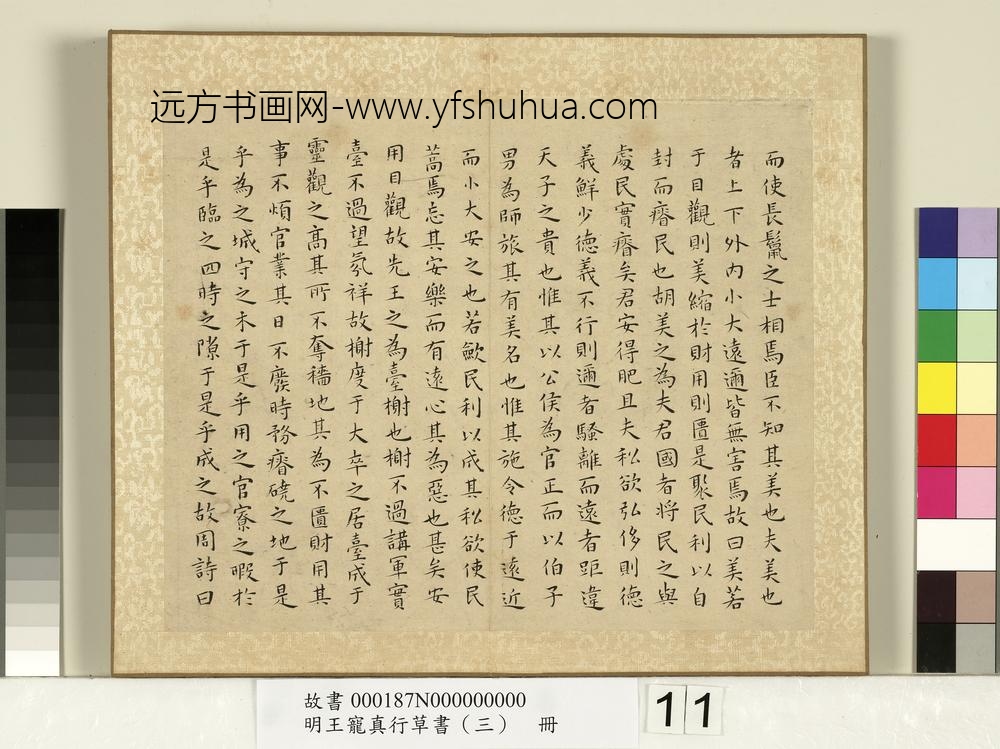 远方书画网-www.yfshuhua.com
而使長鬣之士相焉臣不知其美也夫美也
者上下外內小大遠邇皆無害焉故曰美若
于目觀則美縮於財用則匱是聚民利以自
封而瘠民也胡美之為夫君國者將民之與
處民實瘠矣君安得肥且夫私欲弘侈則德
義鮮少德義不行則邇者騷離而遠者距違
天子之貴也惟其以公侯為官正而以伯子
男為師旅其有美名也惟其施令德于遠近
而小大安之也若歛民利以成其私欲使民
蒿焉忘其安樂而有遠心其為惡也甚矣安
用目觀故先王之為臺榭也榭不過講軍實
臺不過望氛祥故榭度于大卒之居臺成于
靈觀之高其所不奪穡地其為不匱財用其
事不煩官業其日不廢時務瘠磽之地于是
乎為之城守之未于是乎用之官寮之暇於
是乎臨之四時之隙于是乎成之故周詩曰
故書 000187N000000000
明王寵真行草書（三） 冊
11